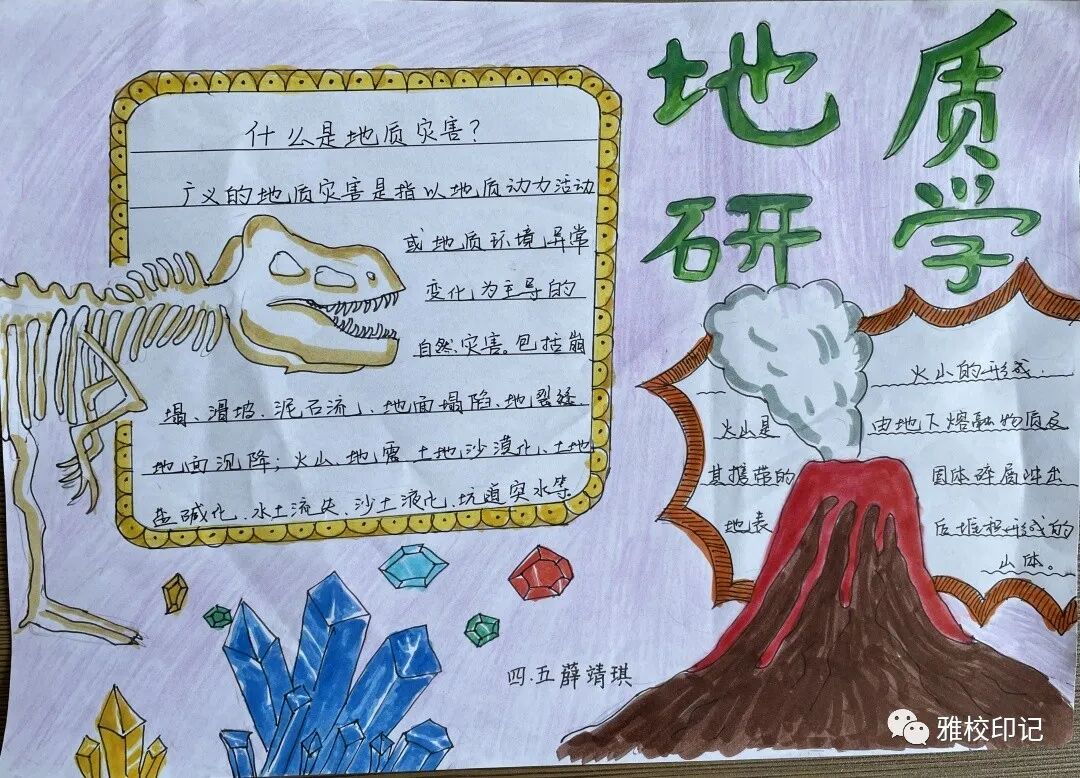 地质
研学
什么是地质灾害？
广义的地质灾害是指以地质动力活动
或地质环境异常
变化为主导的
自然灾害。包括崩
塌、滑坡、泥石流、地面塌陷、地裂缝
地面沉降；火山、地震、土地沙漠化、土地
盐碱化、水土流失、沙土液化、坑道突水等
火山的形成.
火山是 由地下熔融物质及
其携带的 固体碎屑冲出
地表 后堆积形成的
山体。
四.五薛靖琪
雅校印记